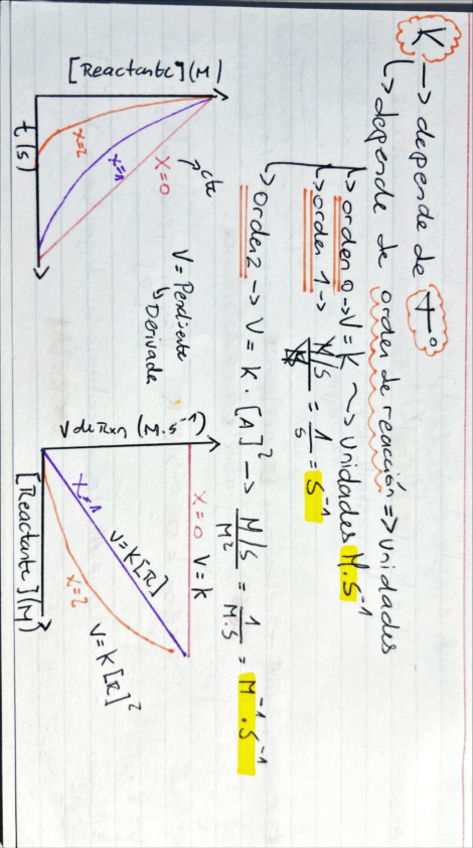 K → depende de T°
↳ depende de orden de reacción => unidades
↳ orden 0 → V = K ~> unidades M·s⁻¹
↳ orden 1 → M/s / M = 1/s = s⁻¹
↳ orden 2 → V = K · [A]² → M/s / M² = 1 / M·s = M⁻¹·s⁻¹
[Reactante] (M)
x=0
↳ cte
x=1
x=2
t (s)
V = Pendiente
↳ Derivada
V de Rxn (M·s⁻¹)
x=0 V=k
x=1 V=K[R]
x=2 V=K[R]²
[Reactante] (M)